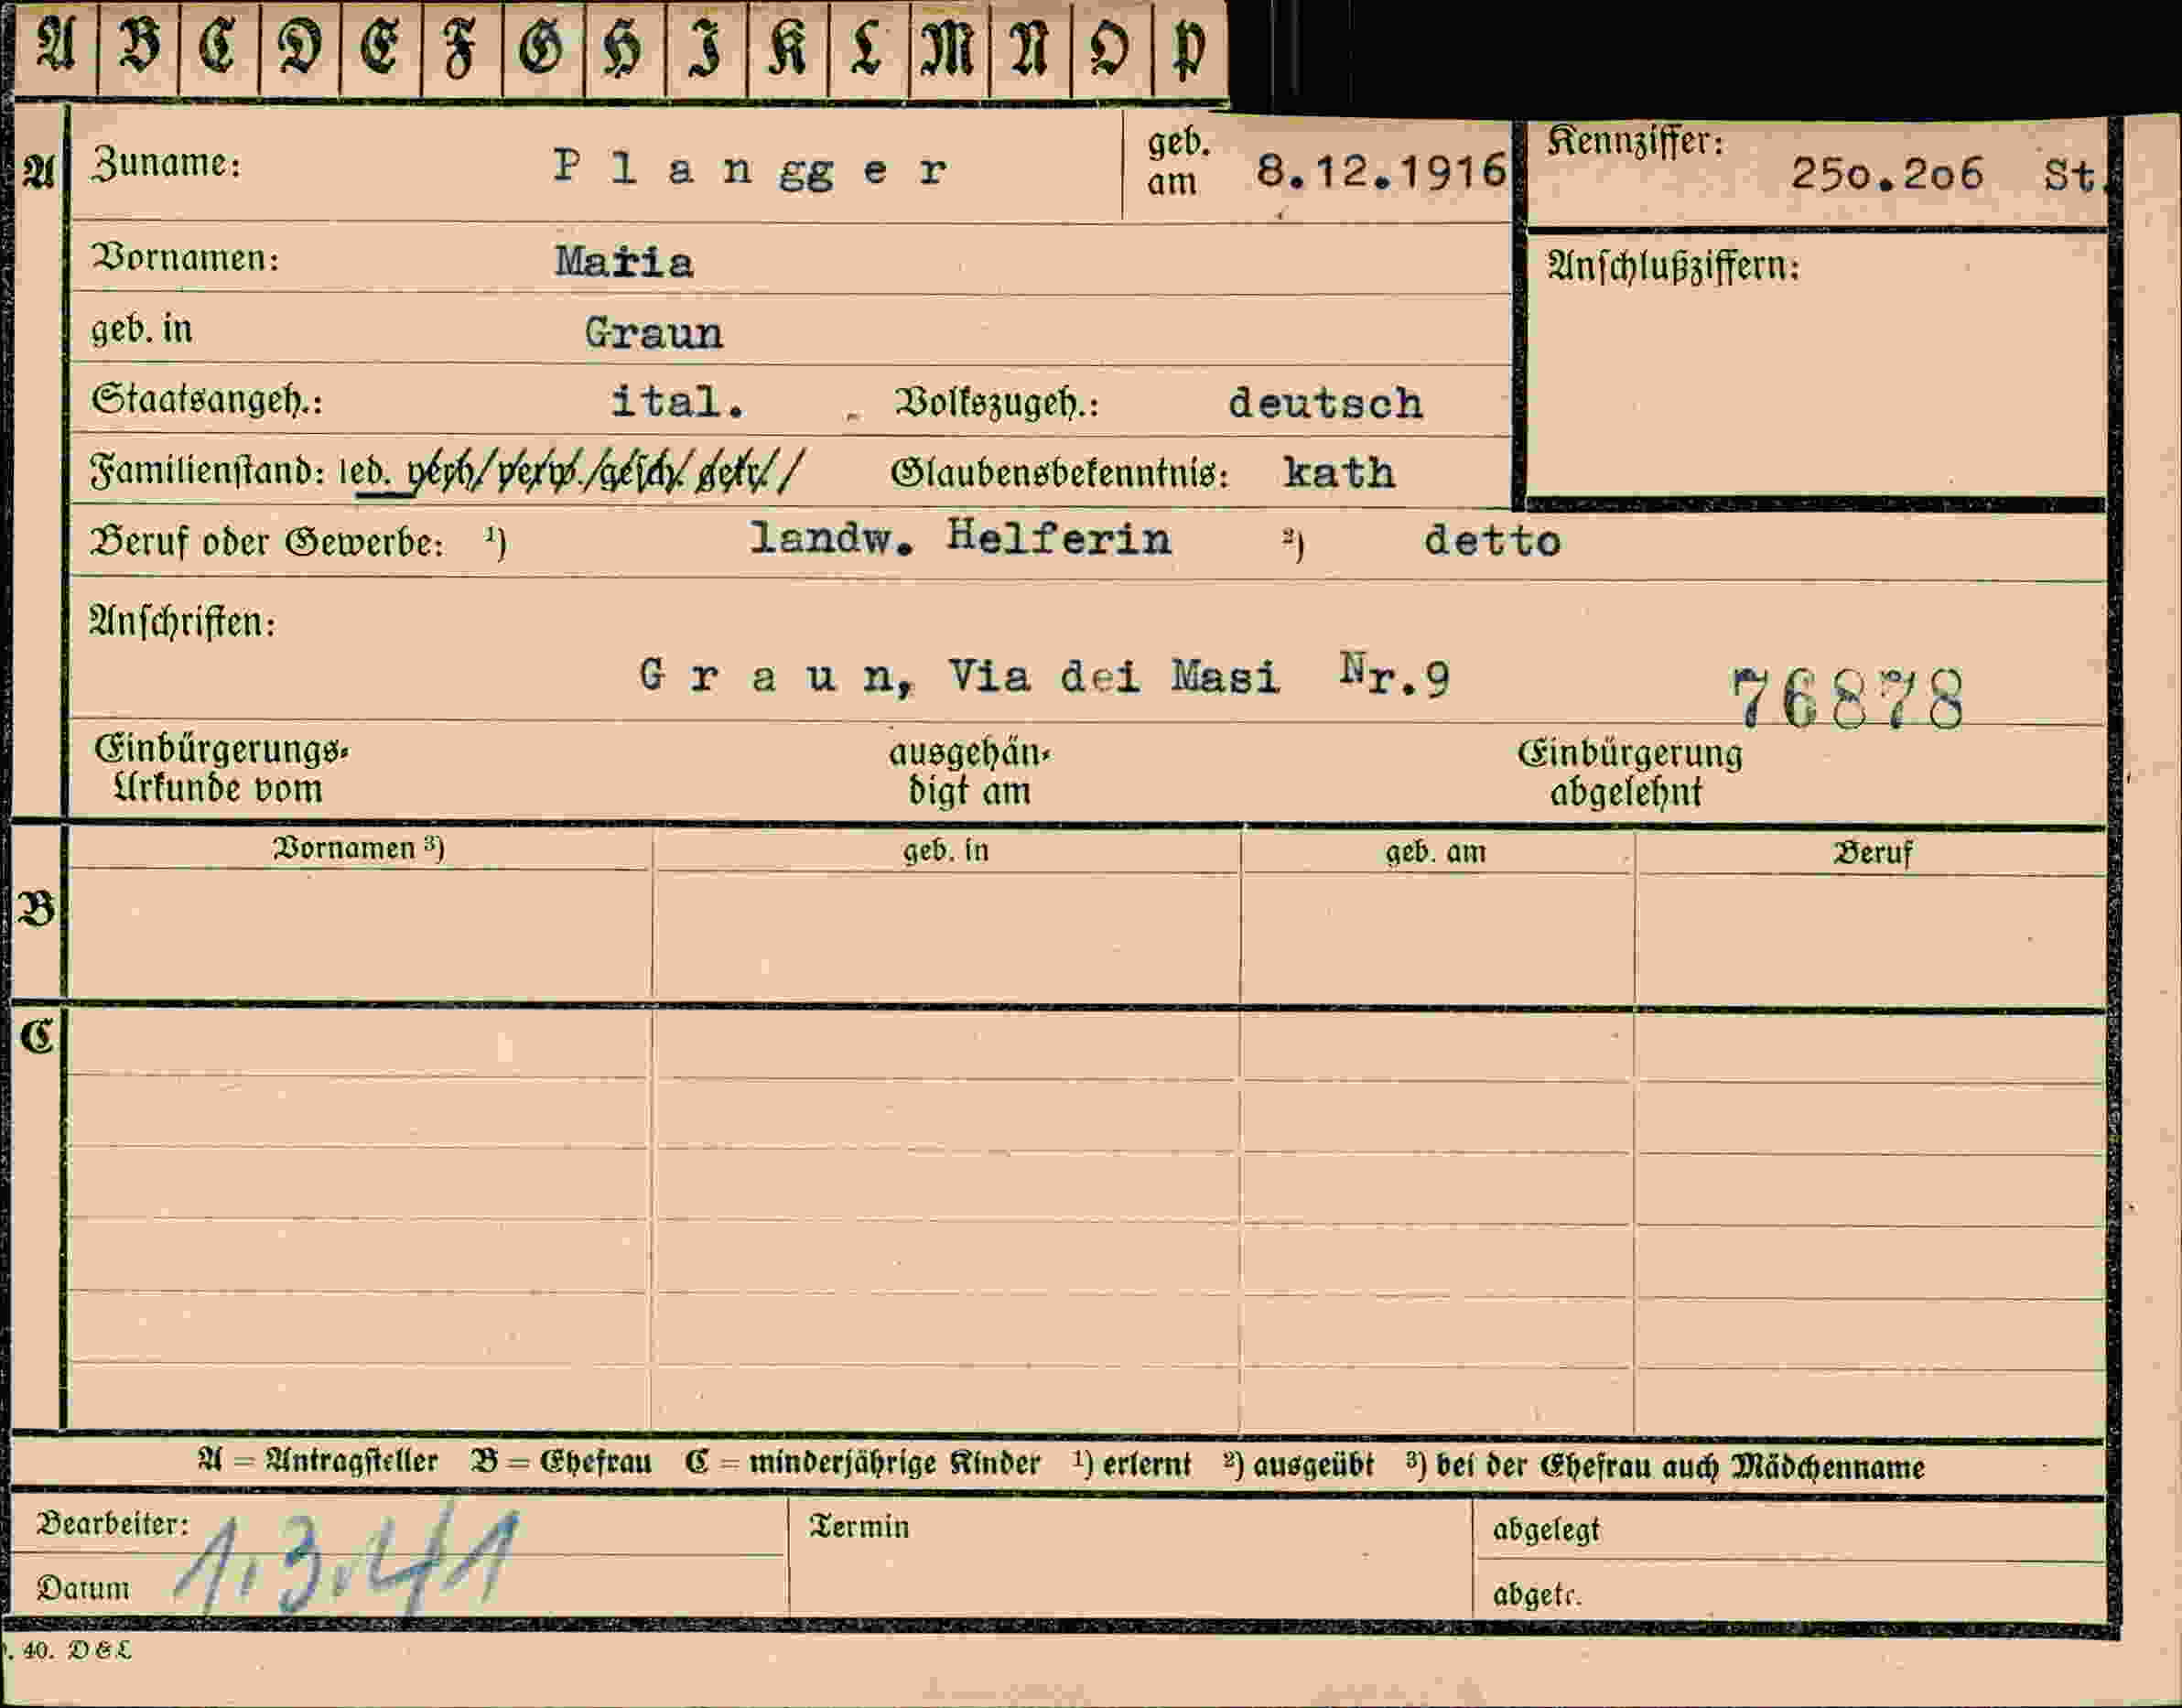 A B C D E F G H I K L M N O P
A Zuname: Plangger geb. am 8.12.1916 Kennziffer: 250.206 St.
Vornamen: Maria Anschlußziffern:
geb. in Graun
Staatsangeh.: ital. Volkszugeh.: deutsch
Familienstand: led. verh/verw./gesch/getr// Glaubensbekenntnis: kath
Beruf oder Gewerbe: ¹) landw. Helferin ²) detto
Anschriften:
Graun, Via dei Masi Nr.9 76878
Einbürgerungs- ausgehän- Einbürgerung
Urkunde vom digt am abgelehnt
Vornamen ³) geb. in geb. am Beruf
B
C
A = Antragsteller B = Ehefrau C = minderjährige Kinder ¹) erlernt ²) ausgeübt ³) bei der Ehefrau auch Mädchenname
Bearbeiter: Termin abgelegt
Datum 1.3.41 abgetr.
. 40. D & L